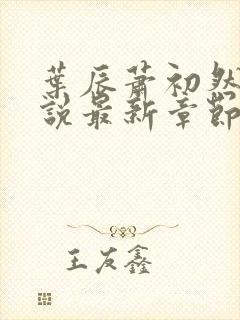 葉辰蕭初然
說最新章節
王友鑫